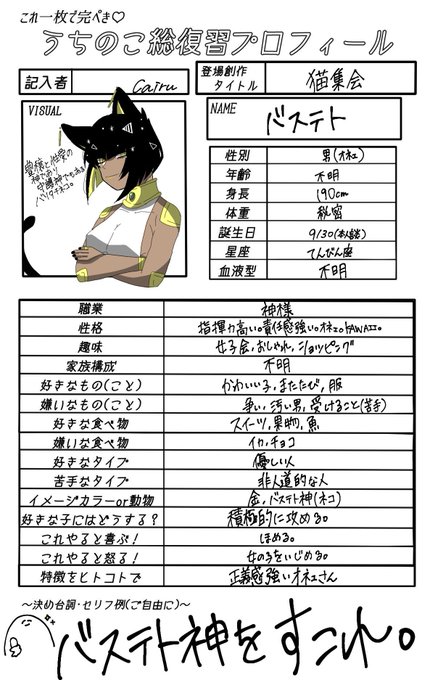 これ一枚で完ぺき♡
うちのこ総復習プロフィール
記入者 Cairu
登場創作タイトル 猫集会
VISUAL
豊穣と性愛の
神であり
守護神でもある
バリタチネコ。
NAME
バステト
性別 男(オネエ)
年齢 不明
身長 190cm
体重 秘密
誕生日 9/30(本人談)
星座 てんびん座
血液型 不明
職業 神様
性格 指揮力高い。責任感強い。オネエ。KAWAII。
趣味 女子会,おしゃれ,ショッピング
家族構成 不明
好きなもの(こと) かわいい子,またたび,服
嫌いなもの(こと) 争い,汚い男,受けること(苦手)
好きな食べ物 スイーツ,果物,魚
嫌いな食べ物 イカ,チョコ
好きなタイプ 優しい人
苦手なタイプ 非人道的な人
イメージカラーor動物 金,バステト神(ネコ)
好きな子にはどうする? 積極的に攻める。
これやると喜ぶ! ほめる。
これやると怒る! 女の子をいじめる。
特徴をヒトコトで 正義感強いオネエさん
~決め台詞・セリフ例(ご自由に)~
バステト神をすこれ。